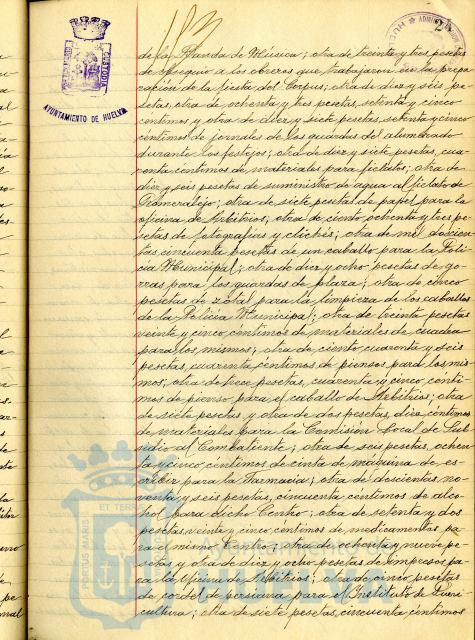 AYUNTAMIENTO DE HUELVA
de la Banda de Música; otra de treinta y tres pesetas
de obsequio a los obreros que trabajaron en la prepa-
ración de la fiesta del Corpus; otra de diez y seis, pe-
setas, otra de ochenta y tres pesetas, setenta y cinco
céntimos, y otra de diez y siete pesetas, setenta y cinco
céntimos de jornales de los guardas del alumbrado
durante los festejos; otra de diez y siete pesetas, cua-
renta céntimos de materiales para fielatos; otra de
diez y seis pesetas de suministro de agua al fielato de
Gomeralejo; otra de siete pesetas de papel para la
oficina de Arbitrios; otra de ciento ochenta y tres pe-
setas de fotografías y clichés; otra de mil doscien-
tas cincuenta pesetas de un caballo para la Poli-
cía Municipal; otra de diez y ocho pesetas de go-
rras para los guardas de plaza; otra de cinco
pesetas de zotal para la limpieza de los caballos
de la Policía Municipal; otra de treinta pesetas
veinte y cinco céntimos de materiales de cuadra
para los mismos; otra de ciento cuarenta y seis
pesetas, cuarenta céntimos de piensos para los mis-
mos; otra de trece pesetas, cuarenta y cinco cénti-
mos de pienso para el caballo de Arbitrios; otra
de siete pesetas y otra de dos pesetas, diez céntimos
de materiales para la Comisión Local de Sub-
sidio al Combatiente; otra de seis pesetas, ochen-
ta y cinco céntimos de cinta de máquina de es-
cribir para la Farmacia; otra de doscientas no-
venta y seis pesetas, cincuenta céntimos de alco-
hol para dicho Centro; otra de setenta y dos
pesetas, veinte y cinco céntimos de medicamentos pa-
ra el mismo Centro; otra de ochenta y nueve pe-
setas y otra de diez y ocho pesetas de impresos pa-
ra la Oficina de Arbitrios; otra de cinco pesetas
de cordel de persiana para el Instituto de Pueri-
cultura; otra de siete pesetas, cincuenta céntimos
PORTUS MARIS
ET TERRAE
Ayuntamiento de